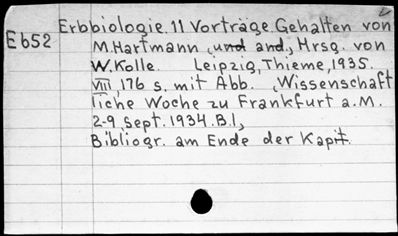 Erbbiologie. 11 Vorträge. Gehalten von
E652 M. Hartmann, und and., Hrsg. von
W. Kolle. Leipzig, Thieme, 1935.
VIII, 176 s. mit Abb. (Wissenschaft
liche Woche zu Frankfurt a. M.
2-9, Sept. 1934. B.1,
Bibliogr. am Ende der Kapit.